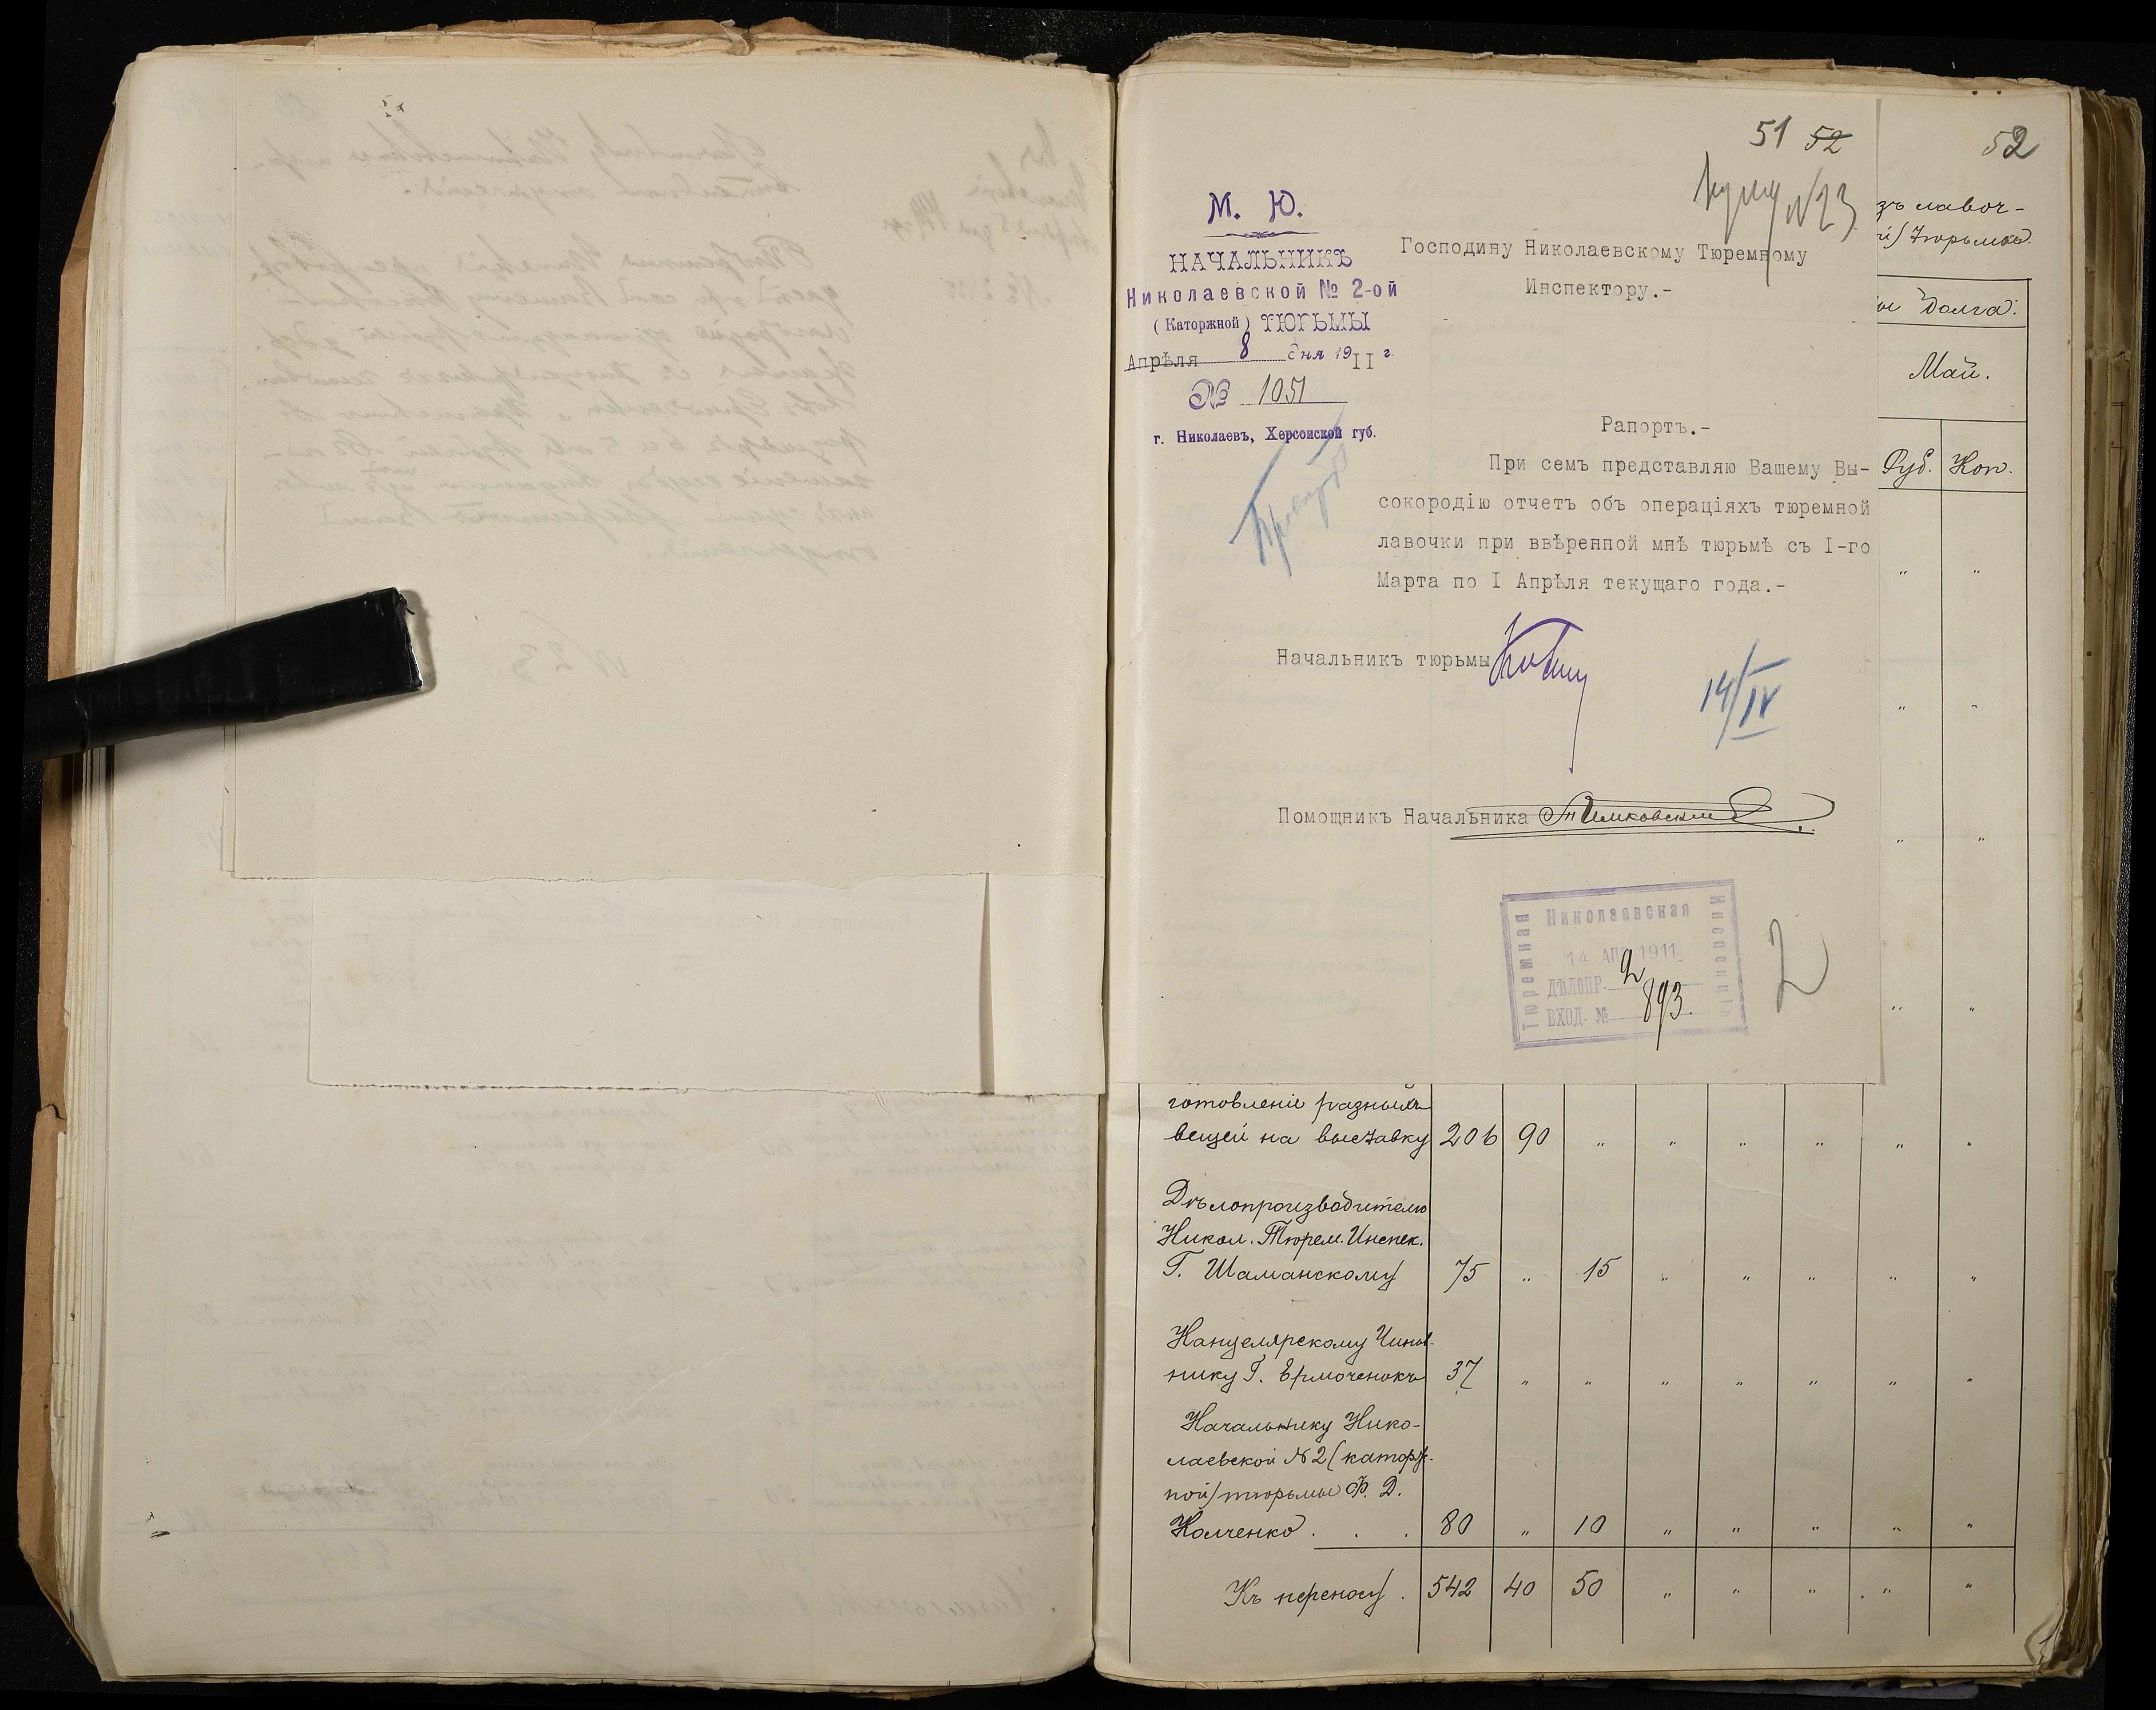 51 52
52
М. Ю.
НАЧАЛЬНИКЪ
Николаевской № 2-ой
(Каторжной) ТЮРЬМЫ
Апрѣля 8 дня 1911 г.
№ 1051
г. Николаевъ, Херсонской губ.
№23
Господину Николаевскому Тюремному
Инспектору.-
Рапортъ.-
При семъ представляю Вашему Вы-
сокородію отчетъ объ операціяхъ тюремной
лавочки при ввѣренной мнѣ тюрьмѣ съ I-го
Марта по I Апрѣля текущаго года.-
Начальникъ тюрьмы
14/IV
Помощникъ Начальника
Николаевская
Тюремная
Инспекція
14 АПР 1911
ДѢЛОПР. 2
ВХОД. № 893.
2
зъ лавоч-
й) тюрьмы.
ы долга.
Май.
Руб. Коп.
" "
" "
" "
" "
готовленіе разныхъ
вещей на выставку 206 90 " " " " " "
Дѣлопроизводителю
Никол. Тюрем. Инспек.
Г. Шаманскому 75 " 15 " " " " "
Канцелярскому Чинов-
нику Г. Ермоченокъ 37 " " " " " " "
Начальнику Нико-
лаевской №2 (каторж-
ной) тюрьмы Ф. Д.
Колченко . . . 80 " 10 " " " " "
Къ переносу . 542 40 50 " " " " "